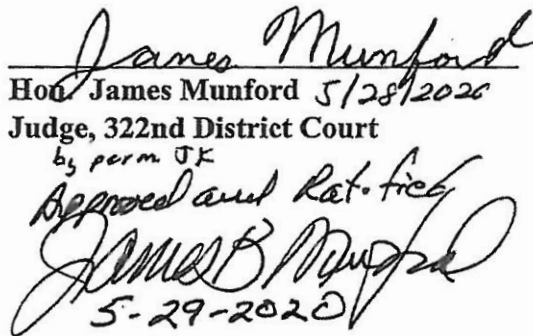 James Munford
Hon. James Munford 5/28/2020
Judge, 322nd District Court
by perm JK
Approved and Ratified
James B Munford
5-29-2020